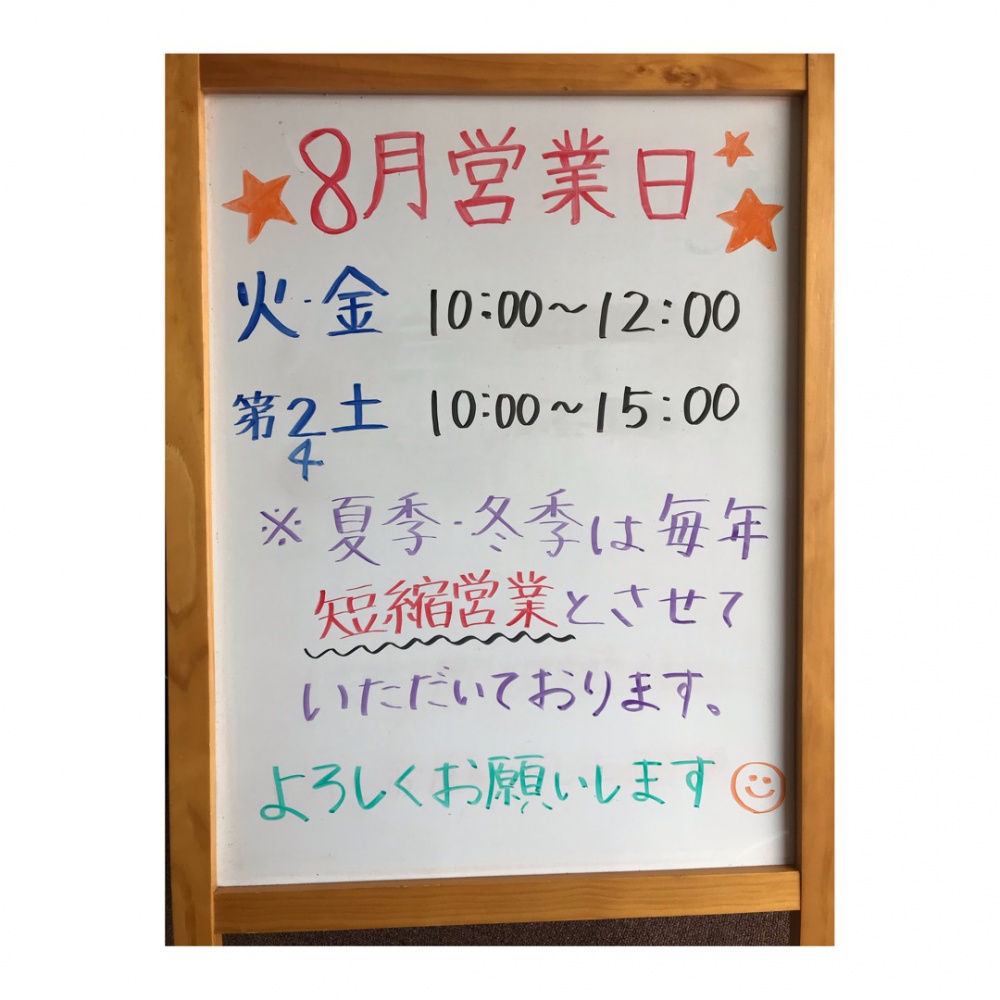 8月営業日
火・金 10:00〜12:00
第2土 10:00〜15:00
4
※夏季・冬季は毎年
短縮営業とさせて
いただいております。
よろしくお願いします